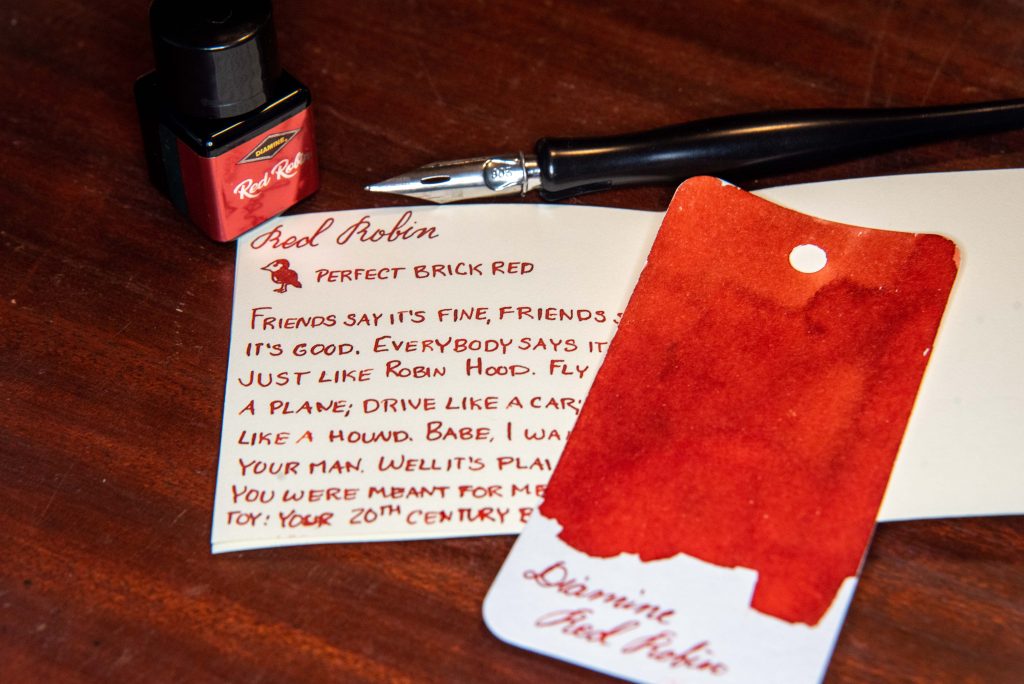 DIAMINE
Red Robin
Red Robin
PERFECT BRICK RED
FRIENDS SAY IT'S FINE, FRIENDS
IT'S GOOD. EVERYBODY SAYS IT
JUST LIKE ROBIN HOOD. FLY
A PLANE; DRIVE LIKE A CAR;
LIKE A HOUND. BABE, I
YOUR MAN. WELL IT'S
YOU WERE MEANT FOR ME
TOY: YOUR 20TH CENTURY
Diamine
Red Robin